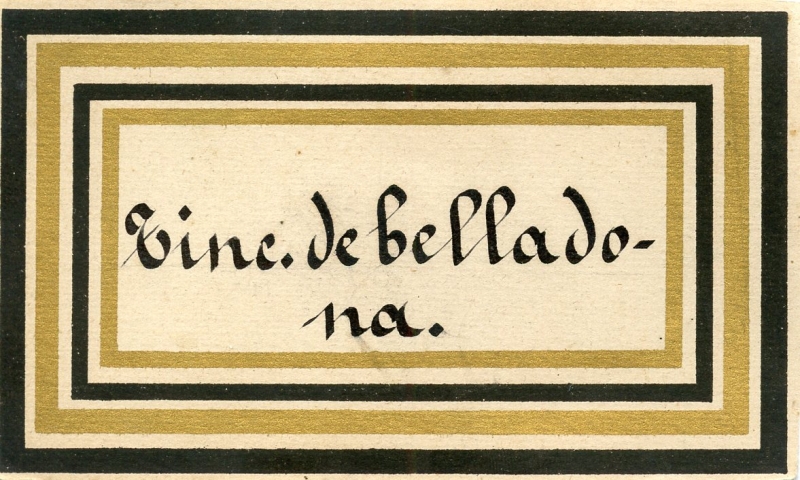 Tinc. de bellado-
na.